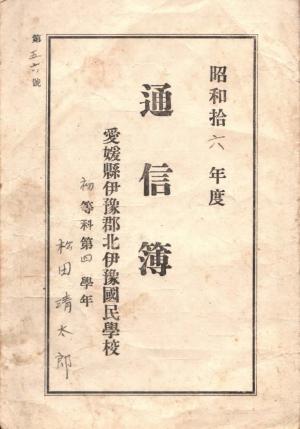 昭和拾六年度
通信簿
愛媛縣伊豫郡北伊豫國民學校
初等科第四學年
松田靖太郎
第五六號